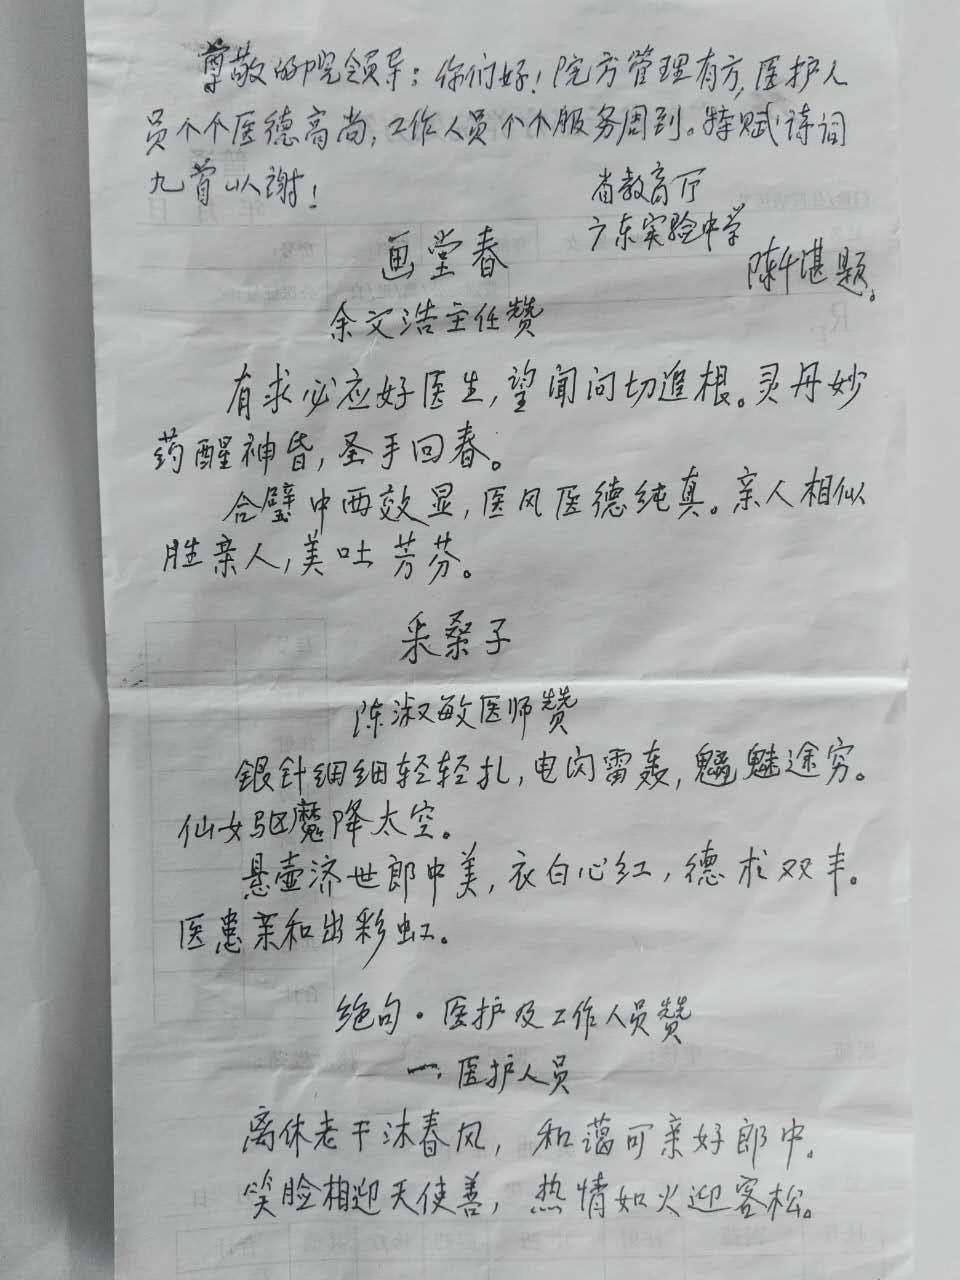 尊敬的院领导：你们好！院方管理有方，医护人
员个个医德高尚，工作人员个个服务周到。特赋诗词
九首以谢！
省教育厅
广东实验中学
陈千湛题。
画堂春
余文浩主任赞
有求必应好医生，望闻问切追根。灵丹妙
药醒神昏，圣手回春。
合璧中西效显，医风医德纯真。亲人相似
胜亲人，美吐芳芬。
采桑子
陈淑敏医师赞
银针细细轻轻扎，电闪雷轰，魑魅途穷。
仙女驱魔降太空。
悬壶济世郎中美，衣白心红，德术双丰。
医患亲和出彩虹。
绝句·医护及工作人员赞
一、医护人员
离休老干沐春风，和蔼可亲好郎中。
笑脸相迎天使善，热情如火迎客松。